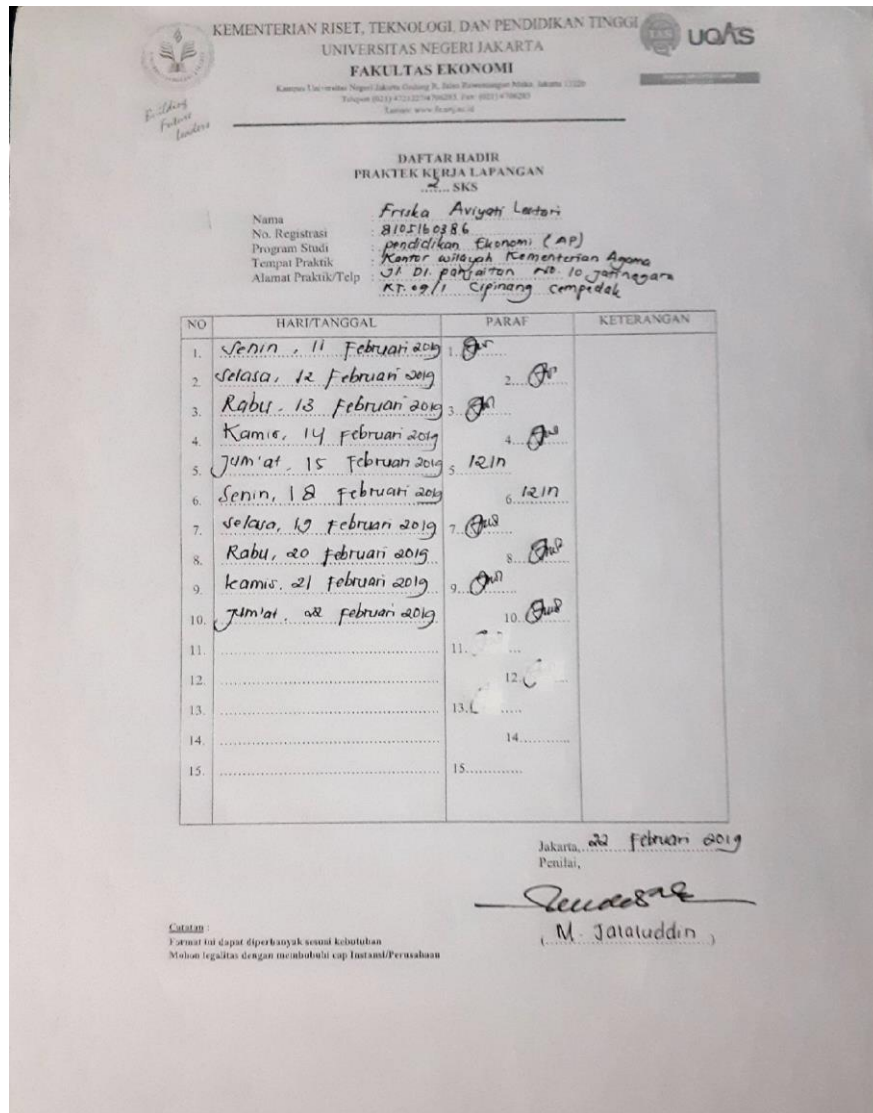 KEMENTERIAN RISET, TEKNOLOGI, DAN PENDIDIKAN TINGGI
UNIVERSITAS NEGERI JAKARTA
FAKULTAS EKONOMI
Kampus Universitas Negeri Jakarta Gedung R, Jalan Rawamangun Muka, Jakarta 13220
Building
Future
Leaders
UQAS
DAFTAR HADIR
PRAKTEK KERJA LAPANGAN
..2.... SKS
Nama : Friska Aviyati Lestari
No. Registrasi : 8105160386
Program Studi : pendidikan Ekonomi (AP)
Tempat Praktik : Kantor wilayah Kementerian Agama
Alamat Praktik/Telp : Jl. DI. panjaitan No. 10 Jatinegara
RT. 09/1 Cipinang cempedak
NO HARI/TANGGAL PARAF KETERANGAN
1. Senin, 11 Februari 2019 1.
2. Selasa, 12 Februari 2019 2.
3. Rabu, 13 Februari 2019 3.
4. Kamis, 14 Februari 2019 4.
5. Jum'at, 15 Februari 2019 5. 12In
6. Senin, 18 Februari 2019 6. 12In
7. Selasa, 19 Februari 2019 7.
8. Rabu, 20 Februari 2019 8.
9. Kamis, 21 Februari 2019 9.
10. Jum'at, 22 Februari 2019 10.
11. 11.
12. 12.
13. 13.
14. 14.
15. 15.
Jakarta, 22 Februari 2019
Penilai,
( M. Jalaluddin )
Catatan :
Format ini dapat diperbanyak sesuai kebutuhan
Mohon legalitas dengan membubuhi cap Instansi/Perusahaan